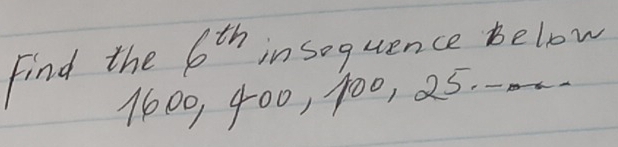 Find the 6th in sequence below
1600, 400, 100, 25.----